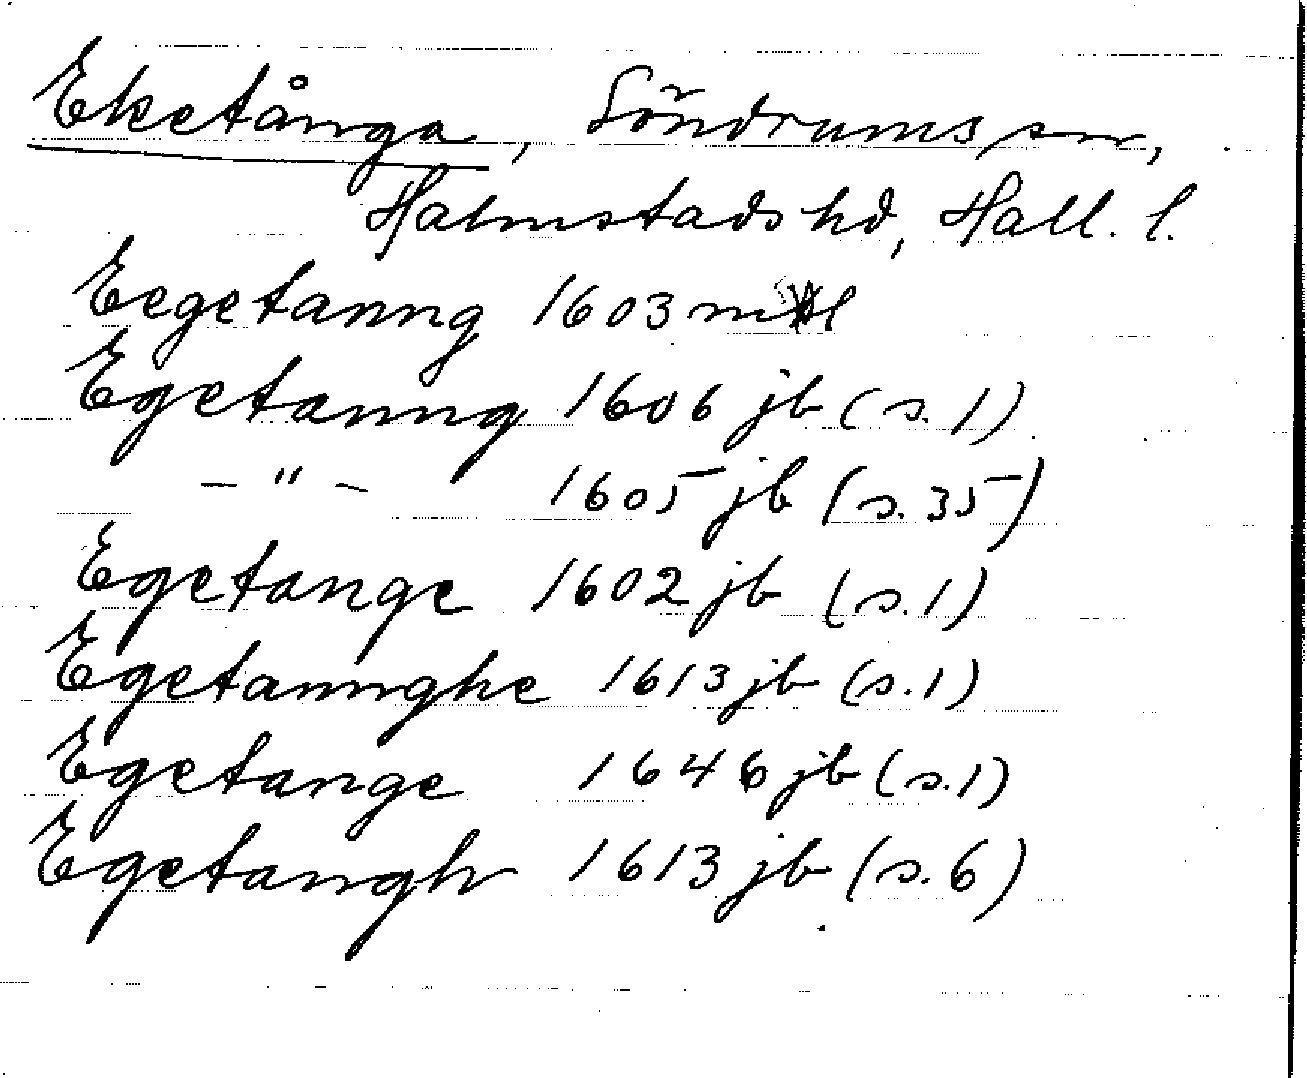 Eketånga, Söndrums sn,
Halmstads hd, Hall. l.
Eegetanng 1603 ml
Egetanng 1606 jb (s. 1)
— " — 1605 jb (s. 35)
Egetange 1602 jb (s. 1)
Egetannghe 1613 jb (s. 1)
Egetange 1646 jb (s. 1)
Egetangh 1613 jb (s. 6)